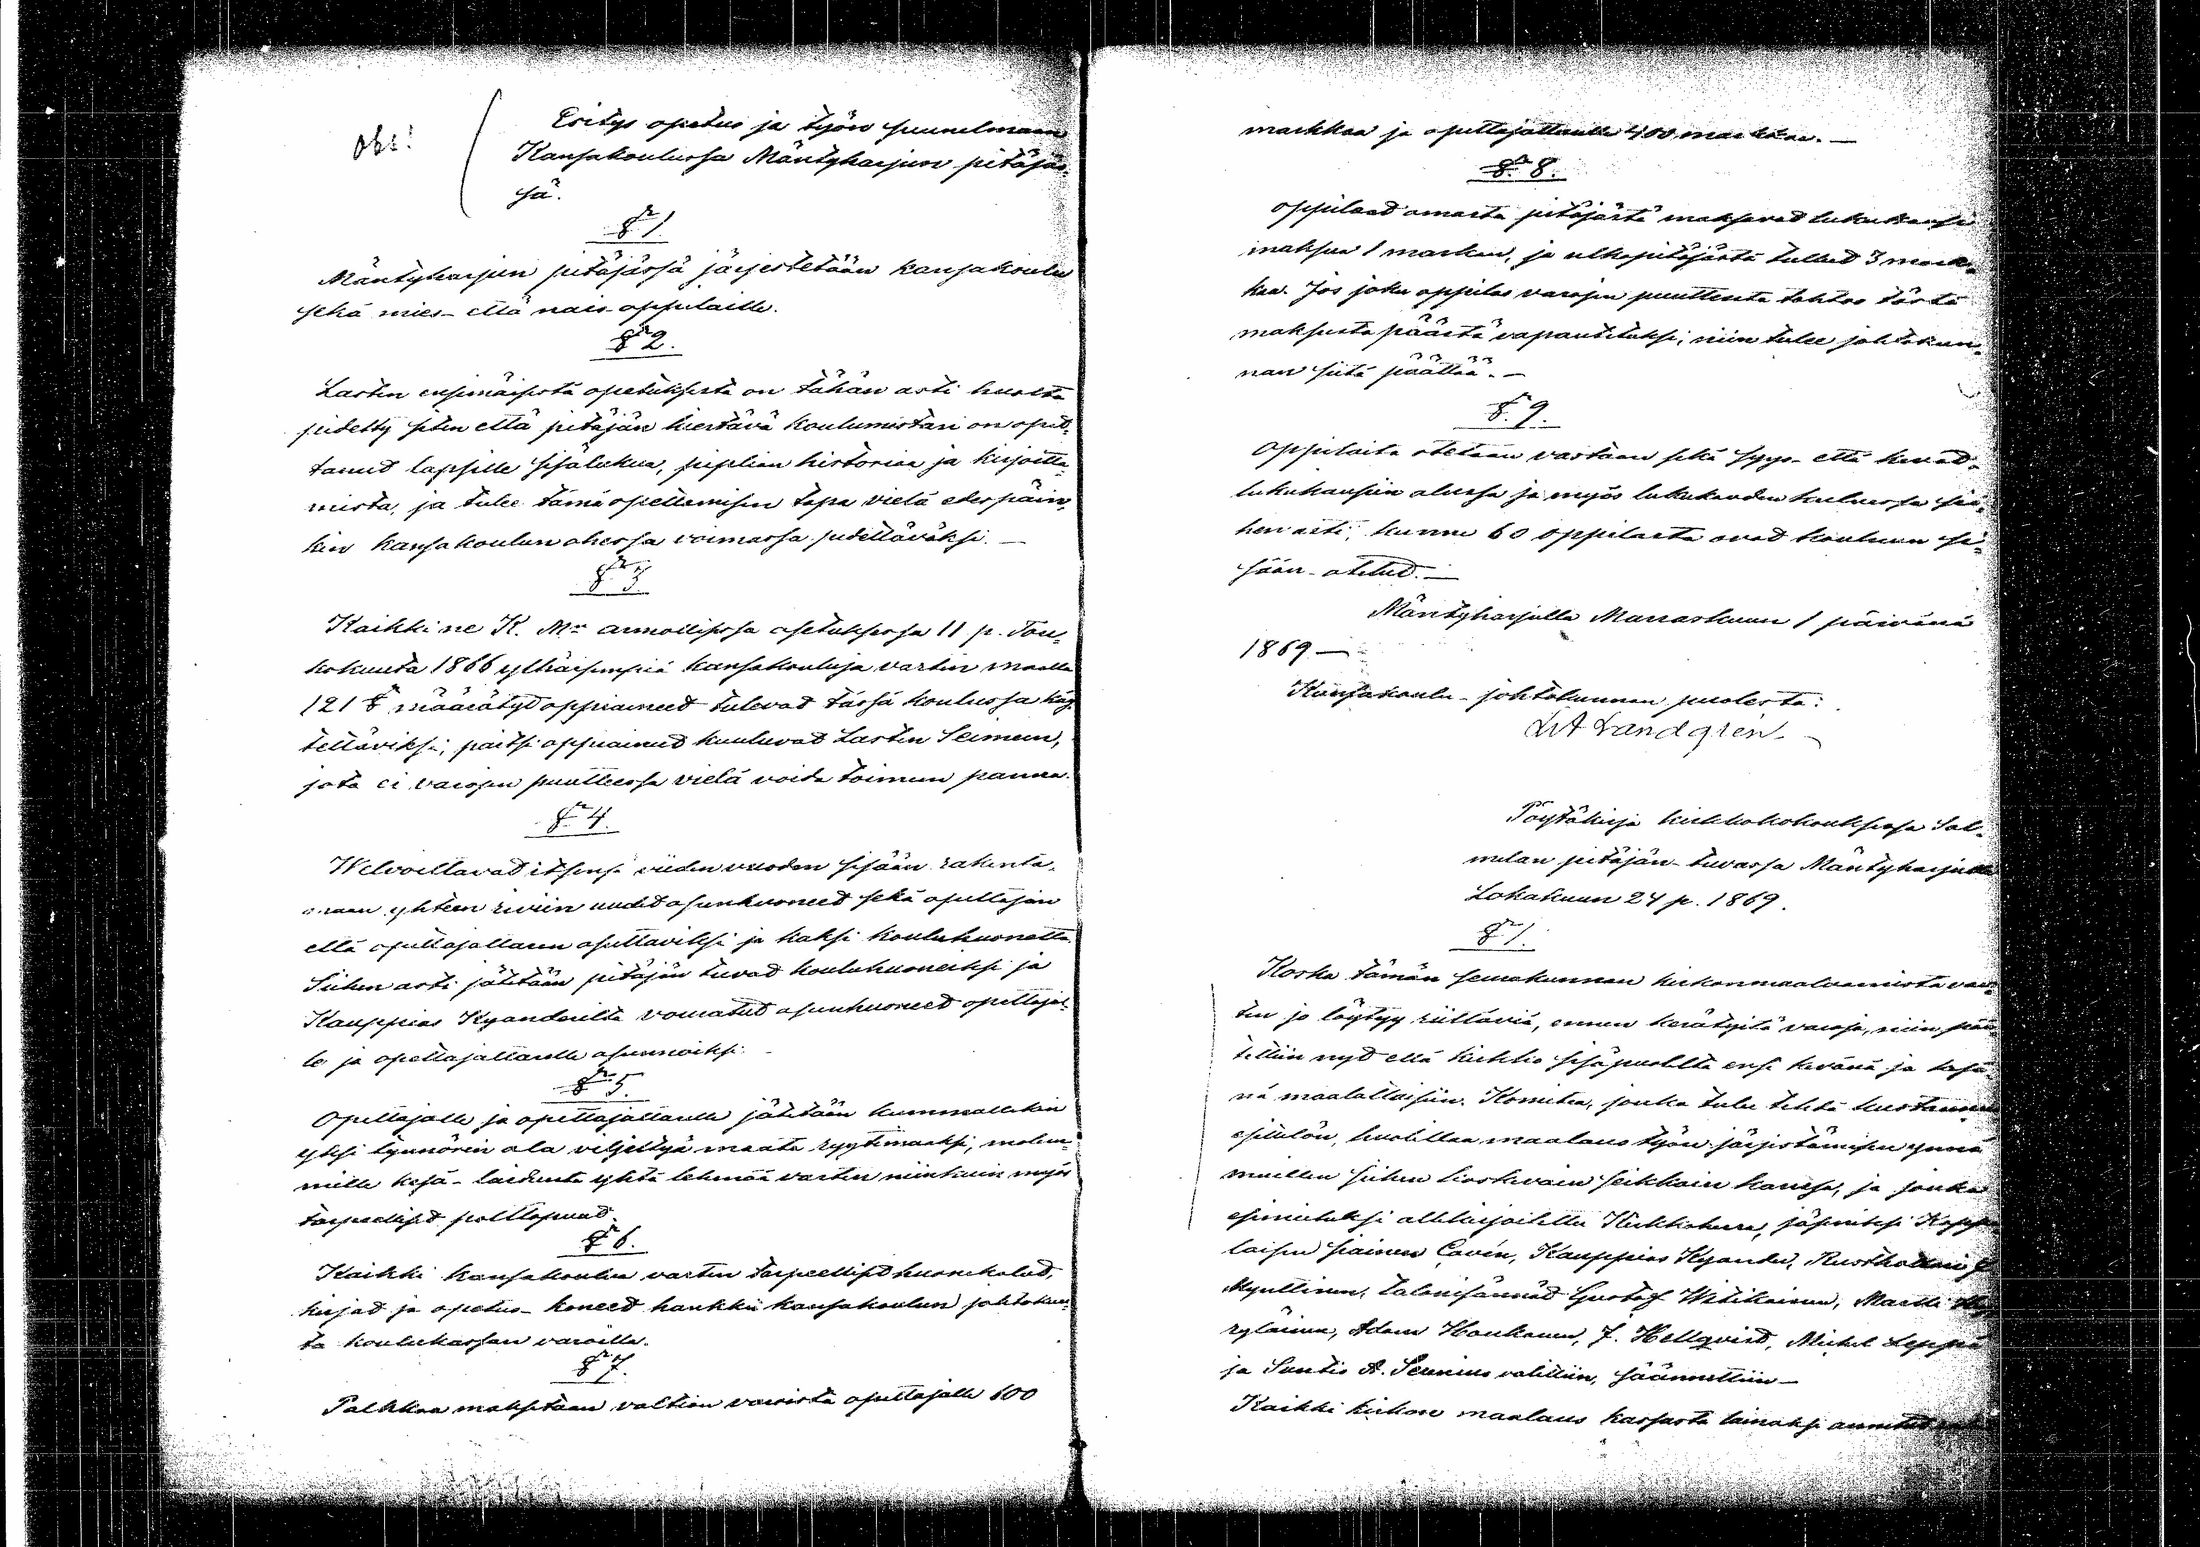 Obs!
Esitys opetus ja työn suunnelmaan
Kansakoulussa Mäntyharjun pitäjäs-
sä.
§ 1.
Mäntyharjun pitäjässä järjestetään kansakoulu
sekä mies- että nais-oppilaille.
§ 2.
Lasten ensimäisestä opetuksesta on tähän asti huolta
pidetty siten että pitäjän kiertävä koulumestari on opet-
tanud lapsille sisälukua, piplian historiaa ja kirjoitta-
mista, ja tulee tämä opettamisen tapa vielä edespäin-
kin kansakoulun ohessa voimassa pidettäväksi. —
§ 3.
Kaikki ne K. M:n armollisessa asetuksessa 11 p. Tou-
kokuuta 1866 ylhäisempiä kansakouluja varten maalla
121 § määrätyd oppiaineed tulevad tässä koulussa käy-
tettäviksi; paitsi oppiaineed kuuluvad Lasten Seimeen,
jota ei varojen puutteessa vielä voida toimeen panna.
§ 4.
Welvoittavad itsensä viiden vuoden sisään rakenta-
maan yhteen riviin uudet asunhuoneed sekä opettajan
että opettajattaren asuttaviksi ja kaksi kouluhuonetta.
Siihen asti jätetään pitäjän tuvad kouluhuoneiksi ja
Kauppias Kyanderilta vouratud asunhuoneed opettajal-
le ja opettajattarelle asunnoiksi.
§ 5.
Opettajalle ja opettajattarelle jätetään kummallekin
yksi tynnörin ala viljeltyä maata ryytimaaksi, molem-
mille kesä-laidunta yhtä lehmää varten niinkuin myös
tarpeellised polttopuud.
§ 6.
Kaikki kansakoulua varten tarpeellised huonekalud,
kirjad ja opetus-koneed hankkii kansakoulun johtokun-
ta koulukassan varoilla.
§ 7.
Palkkaa maksetaan valtion varoista opettajalle 600
markkaa ja opettajattarelle 400 markkaa. —
§ 8.
Oppilaad omasta pitäjästä maksavad lukukausi
maksua 1 markan, ja ulkopitäjästä tulled 3 mark-
kaa. Jos joku oppilas varojen puutteesta tahtoo tästä
maksusta päästä vapautetuksi, niin tulee johtokun-
nan siitä päättää. —
§ 9.
Oppilaita otetaan vastaan sekä syys- että kevät-
lukukausien alussa ja myös lukukauden kuluessa sii-
hen asti, kunne 60 oppilasta ovad kouluun si-
sään-otetud. —
Mäntyharjulla Marraskuun 1 päivänä
1869 —
Kansakoulu-johtokunnan puolesta:
Landgrén.
Pöytäkirja kirkkokokouksessa Sal-
melan pitäjän-tuvassa Mäntyharjulla
Lokakuun 24 p. 1869.
§ 1.
Koska tämän seurakunnan kirkonmaalaamista var-
ten jo löytyy riittäviä, ennen kerätyitä varoja, niin pää-
tettiin nyt että kirkko sisäpuolelta ensi keväänä ja kesä-
nä maalattaisiin. Komitea, jonka tulee tehdä kustannus
esittelön, huolittaa maalaustyön järjestämisen ynnä
muitten siihen koskevain seikkain kanssa, ja jonka
esimieheksi allekirjoitettu Kirkkoherra, jäseniksi Kappa
laisen siainen Cavén, Kauppias Kyander, Rusthollari
Mynttinen, talonisännäd Gustaf Witikainen, Matti
ryläinen, Adam Houkonen, J. Hellqvist, Michel Leppä
ja Suntio A. Sirenius valittiin, säännettiin —
Kaikki kirkon maalaus kassasta lainaksi annetud